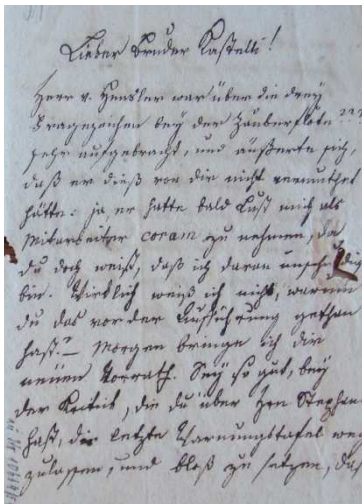 Lieber Bruder Kastelli!
Herr v. Hensler war über die drey
Fragezeichen bey der Zauberflöte ???
sehr aufgebracht, und äußerte sich,
daß er dieß von dir nicht vermuthet
hätte: ja er hatte bald Lust mich als
Mitarbeiter coram zu nehmen, da
du doch weißt, daß ich daran unschuldig
bin. Wirklich weiß ich nicht, warum
du das vor der Aufführung gethan
hast? – Morgen bringe ich dir
neuen Vorrath. Sey so gut, bey
der Kritik, die du über Hrn Stephan
hast, die letzte Warnungstafel weg
zulassen, und bloß zu setzen, daß